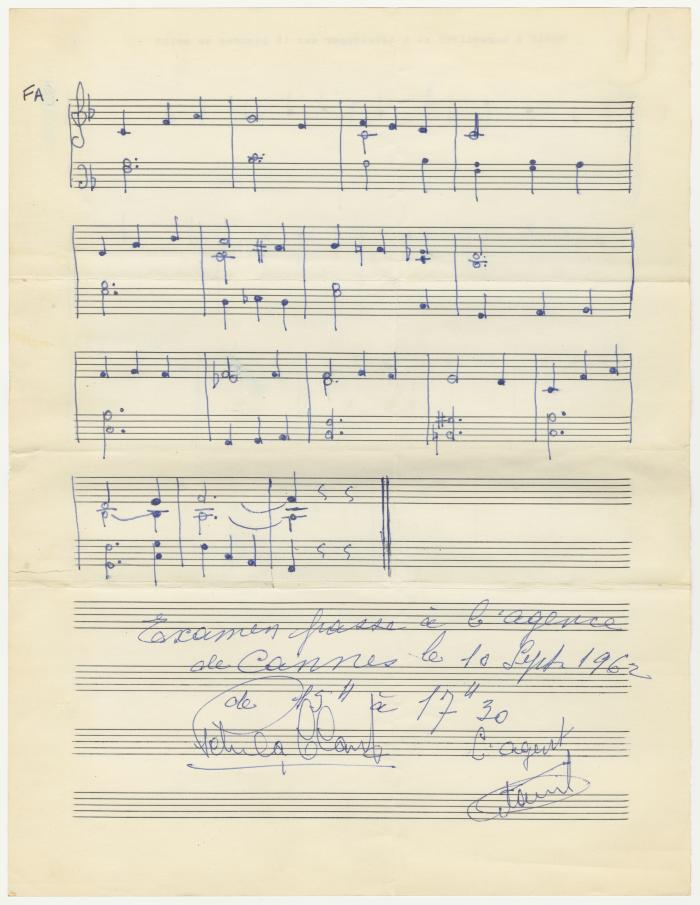 FA.
Examen passé à l'agence
de Cannes le 10 Sept 1962
de 15H à 17H30
Petula Clark L'agent